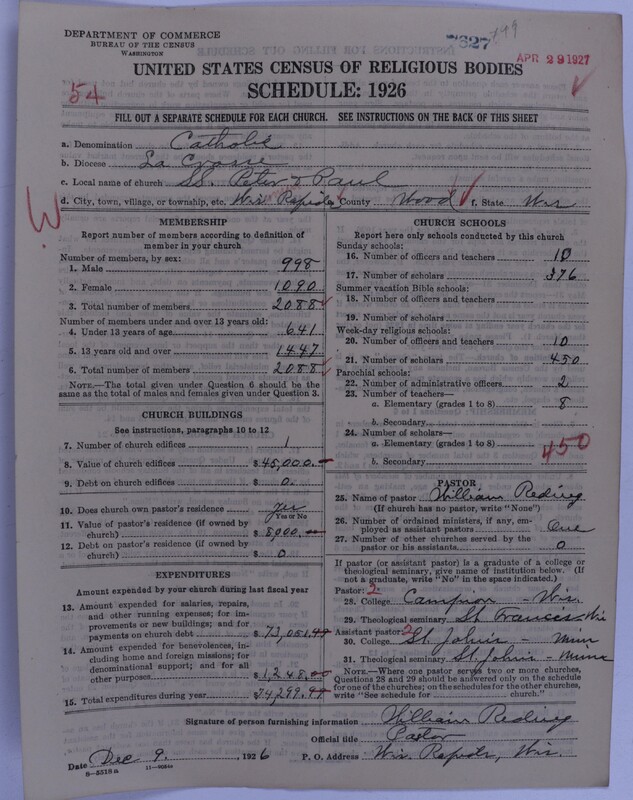 DEPARTMENT OF COMMERCE
BUREAU OF THE CENSUS
WASHINGTON
APR 29 1927
UNITED STATES CENSUS OF RELIGIOUS BODIES
SCHEDULE: 1926
54
FILL OUT A SEPARATE SCHEDULE FOR EACH CHURCH. SEE INSTRUCTIONS ON THE BACK OF THIS SHEET
a. Denomination Catholic
b. Diocese La Crosse
c. Local name of church SS. Peter & Paul
d. City, town, village, or township, etc. Wis. Rapids County Wood f. State Wis
MEMBERSHIP
Report number of members according to definition of member in your church
Number of members, by sex:
1. Male 998
2. Female 1090
3. Total number of members 2088
Number of members under and over 13 years old:
4. Under 13 years of age 641
5. 13 years old and over 1447
6. Total number of members 2088
NOTE.—The total given under Question 6 should be same as the total of males and females given under Question 3.
CHURCH BUILDINGS
See instructions, paragraphs 10 to 12
7. Number of church edifices 1
8. Value of church edifices $ 45,000.
9. Debt on church edifices $ 0.
10. Does church own pastor's residence yes
Yes or No
11. Value of pastor's residence (if owned by church) $ 8,000.
12. Debt on pastor's residence (if owned by church) $ 0
EXPENDITURES
Amount expended by your church during last fiscal year
13. Amount expended for salaries, repairs, and other running expenses; for improvements or new buildings; and for payments on church debt $ 73,051.
14. Amount expended for benevolences, including home and foreign missions; for denominational support; and for all other purposes $ 1,248.
15. Total expenditures during year $ 74,299.
CHURCH SCHOOLS
Report here only schools conducted by this church
Sunday schools:
16. Number of officers and teachers 10
17. Number of scholars 376
Summer vacation Bible schools:
18. Number of officers and teachers
19. Number of scholars
Week-day religious schools:
20. Number of officers and teachers 10
21. Number of scholars 450
Parochial schools:
22. Number of administrative officers 2
23. Number of teachers—
a. Elementary (grades 1 to 8) 8
b. Secondary
24. Number of scholars—
a. Elementary (grades 1 to 8) 450
b. Secondary
PASTOR
25. Name of pastor William Reding
(If church has no pastor, write "None")
26. Number of ordained ministers, if any, employed as assistant pastors One
27. Number of other churches served by the pastor or his assistants 0
If pastor (or assistant pastor) is a graduate of a college or theological seminary, give name of institution below. (If not a graduate, write "No" in the space indicated.)
Pastor: 2
28. College Campion - Wis.
29. Theological seminary St. Francis - Wis
Assistant pastor: 2
30. College St. John's - Minn
31. Theological seminary St. John's - Minn
NOTE.—Where one pastor serves two or more churches, Questions 28 and 29 should be answered only on the schedule for one of the churches; on the schedules for the other churches, write "See schedule for church."
Signature of person furnishing information William Reding
Official title Pastor
Date Dec 9. 1926 P. O. Address Wis. Rapids, Wis.
8-5518 a